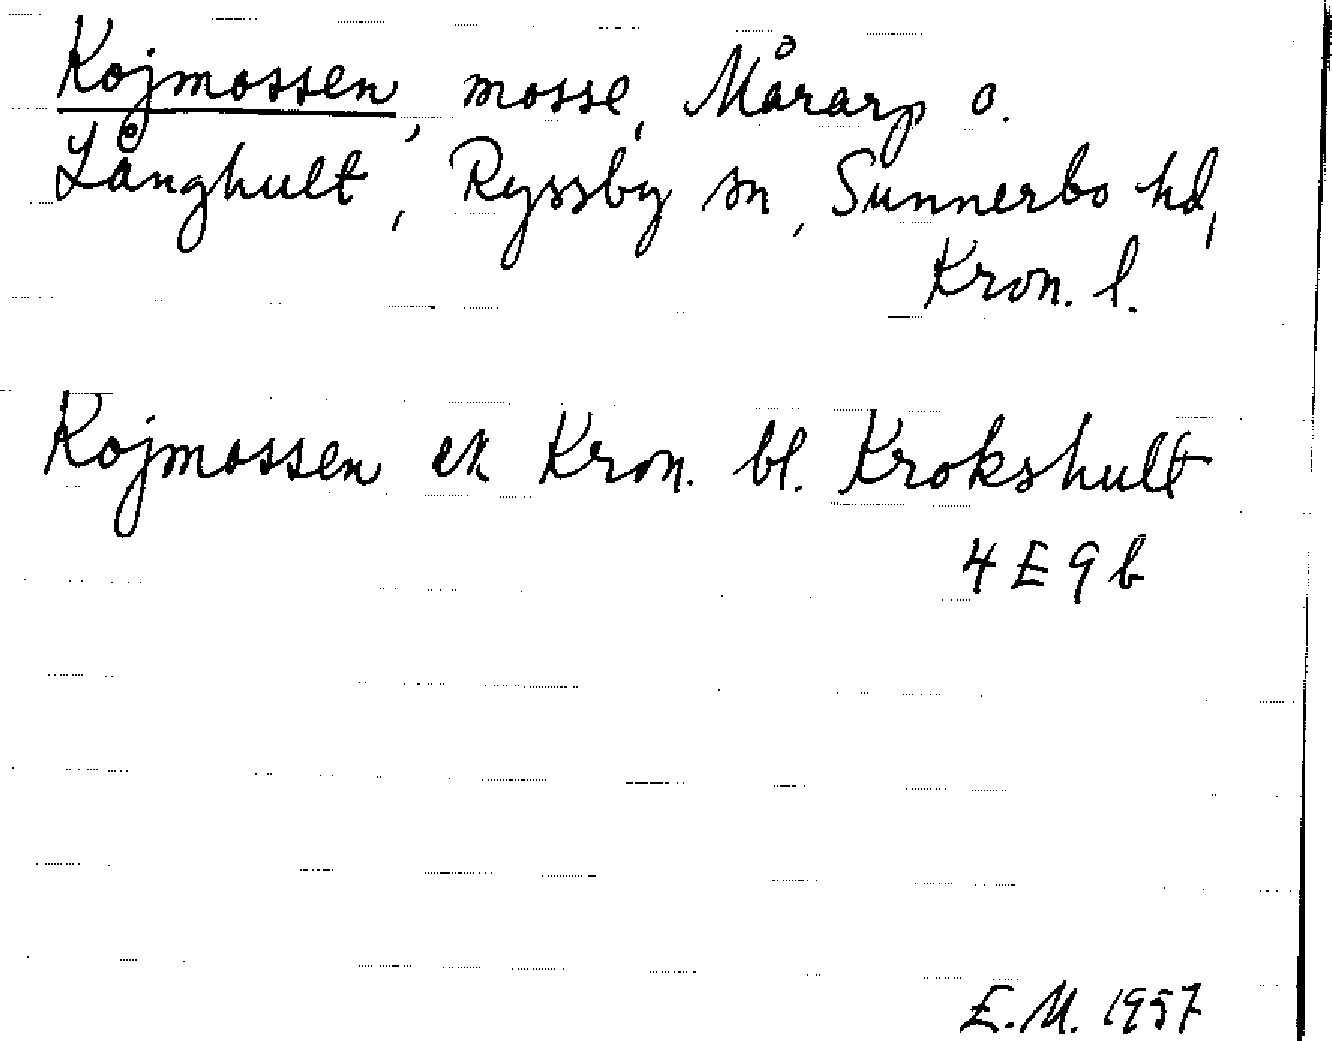 Kojmossen, mosse, Mårarp o.
Långhult, Ryssby sn, Sunnerbo hd,
Kron. l.
Kojmossen ek Kron. bl. Krokshult
4 E 9 b
E.M. 1957